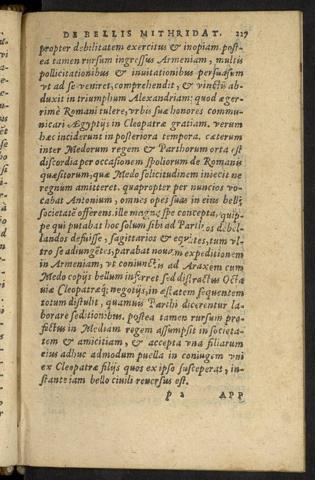 DE BELLIS MITHRIDAT. 227
propter debilitatem exercitus & inopiam. post-
ea tamen rursum ingressus Armeniam, multis
pollicitationibus & inuitationibus persuasum
vt ad se veniret, comprehendit, & vinctū ab-
duxit in triumphum Alexandriam: quod æger-
rimè Romani tulere, vrbis suæ honores commu-
nicari Ægyptijs in Cleopatræ gratiam. verum
hæc inciderunt in posteriora tempora. cæterum
inter Medorum regem & Parthorum orta est
discordia per occasionem spoliorum de Romanis
quæsitorum, quæ Medo solicitudinem iniecit ne
regnum amitteret. quapropter per nuncios vo-
cabat Antonium, omnes opes suas in eius belli
societatē offerens. ille magna spe concepta, quip-
pe qui putabat hoc solum sibi ad Parthos debel-
landos defuisse, sagittarios & equites, tum vl-
tro se adiungētes, parabat nouam expeditionem
in Armeniam, vt coniunctis ad Araxem cum
Medo copijs bellum inferret sed distractus Octa
uiæ Cleopatræq́; negotijs, in æstatem sequentem
totum distulit, quamuis Parthi dicerentur la-
borare seditionibus. postea tamen rursum pro-
fectus in Mediam regem assumpsit in societa-
tem & amicitiam, & accepta vna filiarum
eius adhuc admodum puella in coniugem vni
ex Cleopatræ filijs quos ex ipso susceperat, in-
stante iam bello ciuili reuersus est.
p 2 APP